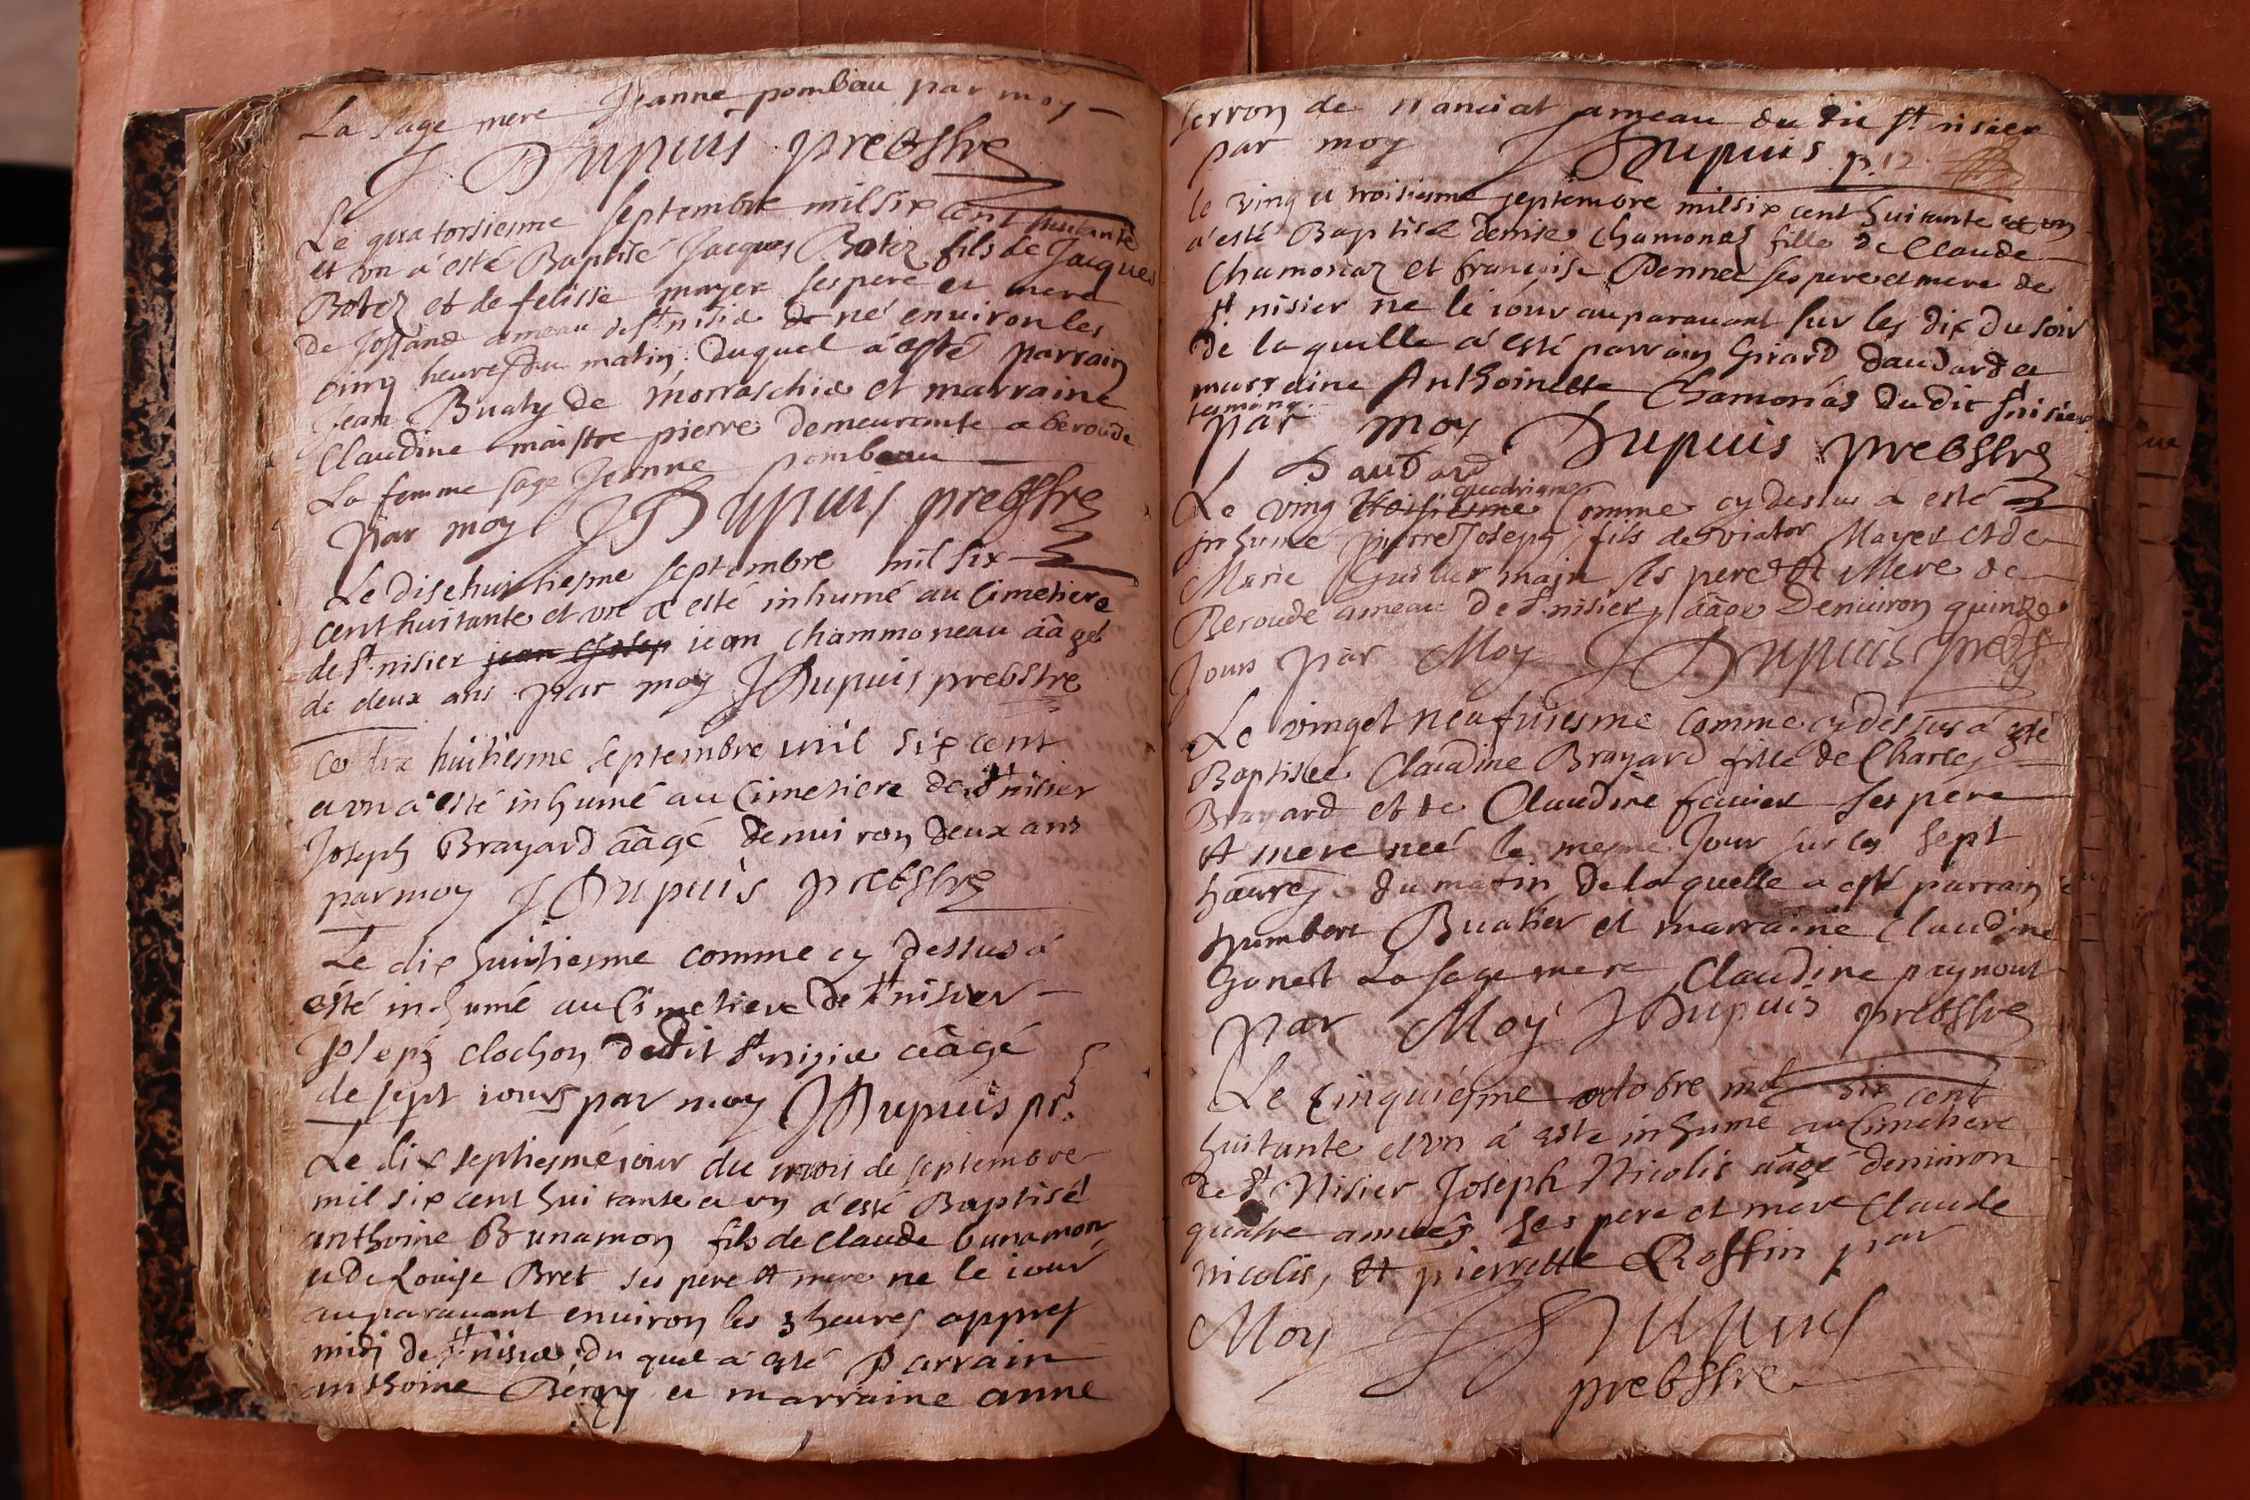 La sage mere Jeanne pombeau par moy
J Dupuis prebstre
Le quatorsiesme septembre mil six cent huitante
et vn a esté Baptisé Jacques Botez fils de Jacques
Botez et de felisse mayer ses pere et mere
De Jossand ameau de st nisie de né environ les
cinq heures du matin. duquel a esté parrain
Jean Buaty de morraschie et marraine
Claudine maistre pierre demeurante a beroude
La femme sage Jeanne pombeau
par moy J Dupuis prebstre
Le disehuitiesme septembre mil six
cent huitante et vn a esté inhumé au Cimetiere
de st nisier jean ioan chammoneau aâgé
de deux ans par moy J Dupuis prebstre
Ce dix huitiesme septembre mil six cent
et vn a esté inhumé au Cimetiere de st nisier
Joseph Brayard aâgé denuiron deux ans
par moy J Dupuis prebstre
Le dix huitiesme comme cy dessus a
esté inhumé au Cimetiere de st nisier
Joseph clochon dudit st nizie aâgé
de sept iours par moy J Dupuis pr.
Le dix septiesme iour du mois de septembre
mil six cent huitante et vn a esté Baptisé
anthoine Bunamon fils de claude bunamon
et de Louise Bret ses pere et mere ne le iour
auparauant enuiron les 3 heures appres
midi de st nisie du quel a esté Parrain
anthoine Berry et marraine anne
ferron de nanciat ameau du dit st nisier
par moy J Dupuis p. 12
le vingt troisiesme septembre mil six cent huitante et vn
a esté Baptisé denise Chamonas fille de Claude
Chamonaz et françoise Pennet ses pere et mere de
st nisier ne le iour auparauant sur les dix du soir
De laquelle a esté parrain Girard daudard et
marraine Anthoinette Chamonas dudit st nisier
tesmoing.
par moy Dupuis prebstre
Daudard
quadriesme
Le ving troisiesme Comme cy dessus a esté
inhumé pierre Joseph fils de viator Mayer et de
Marie Guillermain ses pere et Mere de
Beroude ameau de st nisier, aâge denuiron quinze
Jours par Moy J Dupuis preb
Le vinget neufuiesme Comme cy dessus a esté
Baptisée Claudine Brayard fille de Charles
Brayard et de Claudine fauier ses pere
et mere neé le mesme Jour sur les sept
heures du matin, De laquelle a esté parrain
humbert Buatier et marraine Claudine
Gonest La sage mere Claudine paynout
par Moy J Dupuis prebstre
Le Cinquiésme octobre mil six cent
huitante et vn a este inhumé au Cimetiere
De st Nisier Joseph Nicolis aâgé denuiron
quatre années ses pere et mere Claude
nicolis, et pierrette Roffin par
Moy J Dupuis
prebstre